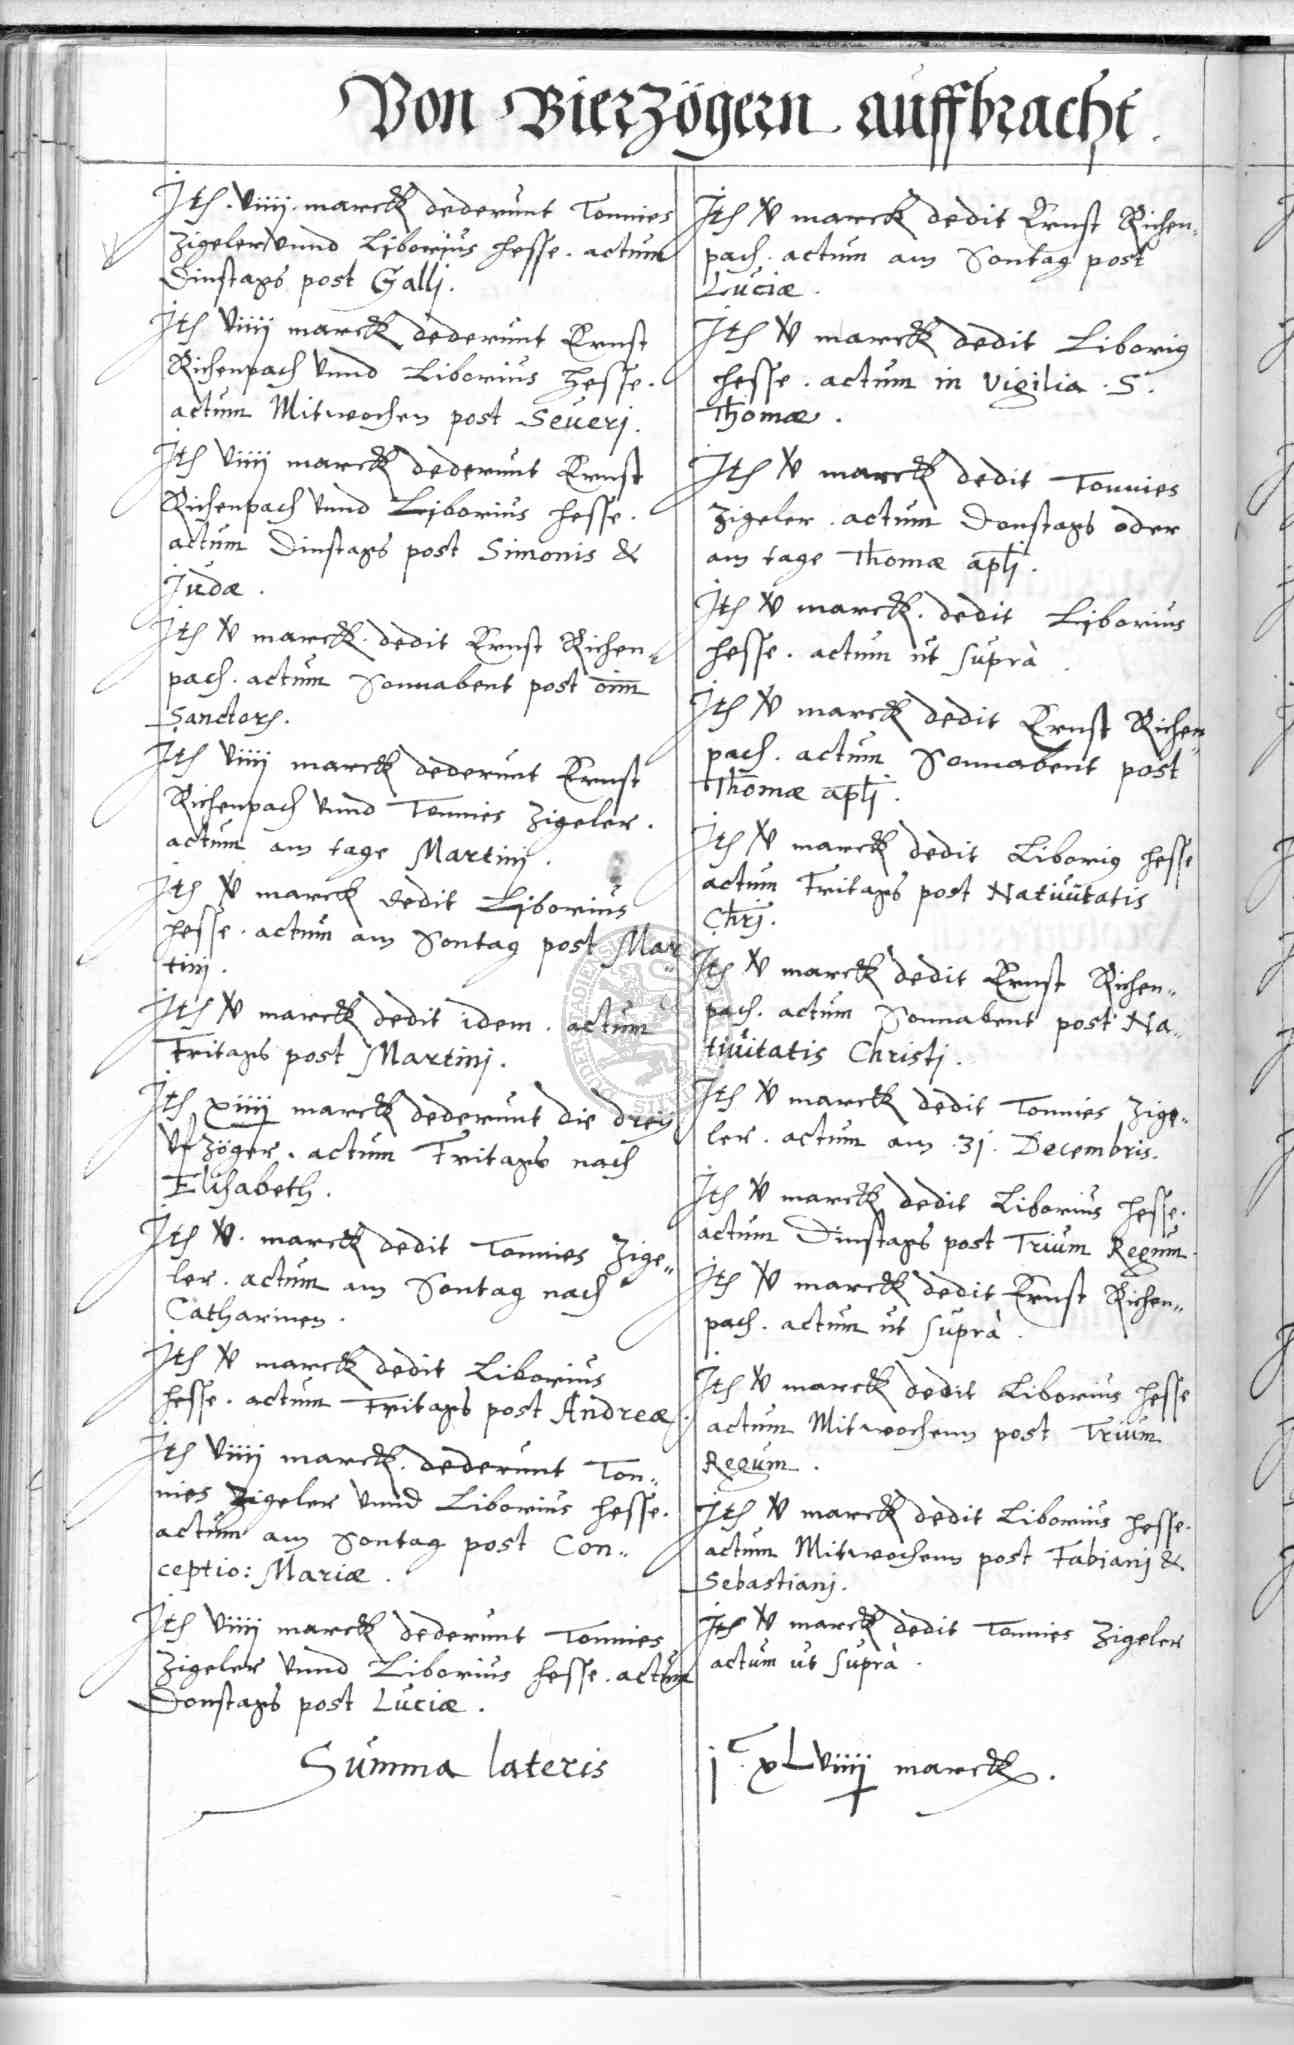 Von Bierzögern auffbracht.
Itē. viiij. marck dederunt Tonnies
Zigeler vnnd Liborius Hesse. actum
Dinstags post Gallj.
Itē viiij marck dederunt Ernst
Richenpach vnnd Liborius Hesse.
actum Mitwochen post Seuerj.
Itē viiij marck dederunt Ernst
Richenpach vnnd Liborius Hesse.
actum Dinstags post Simonis &
Judæ.
Itē v marck. dedit Ernst Richen„
pach. actum Sonnabent post oīm
Sanctorū.
Itē viiij marck dederunt Ernst
Richenpach vnnd Tonnies Zigeler.
actum am tage Martinj.
Itē v marck dedit Liborius
Hesse. actum am Sontag post Mar„
tinj.
Itē v marck dedit idem. actum
Fritags post Martinj.
Itē xiiij marck dederunt die dreÿ
vfzöger. actum Fritags nach
Elisabeth.
Itē v. marck dedit Tonnies Zige„
ler. actum am Sontag nach
Catharinen.
Itē v marck dedit Liborius
Hesse. actum Fritags post Andreæ.
Itē viiij marck. dederunt Ton„
nies Zigeler vnnd Liborius Hesse.
actum am Sontag post Con„
ceptio: Mariæ.
Itē viiij marck dederunt Tonnies
Zigeler vnnd Liborius Hesse. actum
Donstags post Luciæ.
Itē v marck dedit Ernst Richen„
pach. actum am Sontag post
Luciæ.
Itē v marck dedit Liborius
Hesse. actum in Vigilia. S.
Thomæ.
Itē v marck dedit Tonnies
Zigeler. actum Donstags oder
am tage Thomæ apli.
Itē v marck. dedit Liborius
Hesse. actum ut suprà.
Itē v marck dedit Ernst Richen„
pach. actum Sonnabent post
Thomæ apli.
Itē v marck dedit Liborius Hesse
actum Fritags post Natiuitatis
Chrj.
Itē v marck dedit Ernst Richen„
pach. actum Sonnabent post Na„
tiuitatis Christj.
Itē v marck dedit Tonnies Zige„
ler. actum am .31. Decembris.
Itē v marck dedit Liborius Hesse.
actum Dinstags post Trium Regum.
Itē v marck dedit Ernst Richen„
pach. actum ut suprà.
Itē v marck dedit Liborius Hesse
actum Mitwochenn post Trium
Regum.
Itē v marck dedit Liborius Hesse.
actum Mitwochenn post Fabianj &
Sebastianj.
Itē v marck dedit Tonnies Zigeler
actum ut suprà.
Summa lateris jᶜ xLviiij marck.